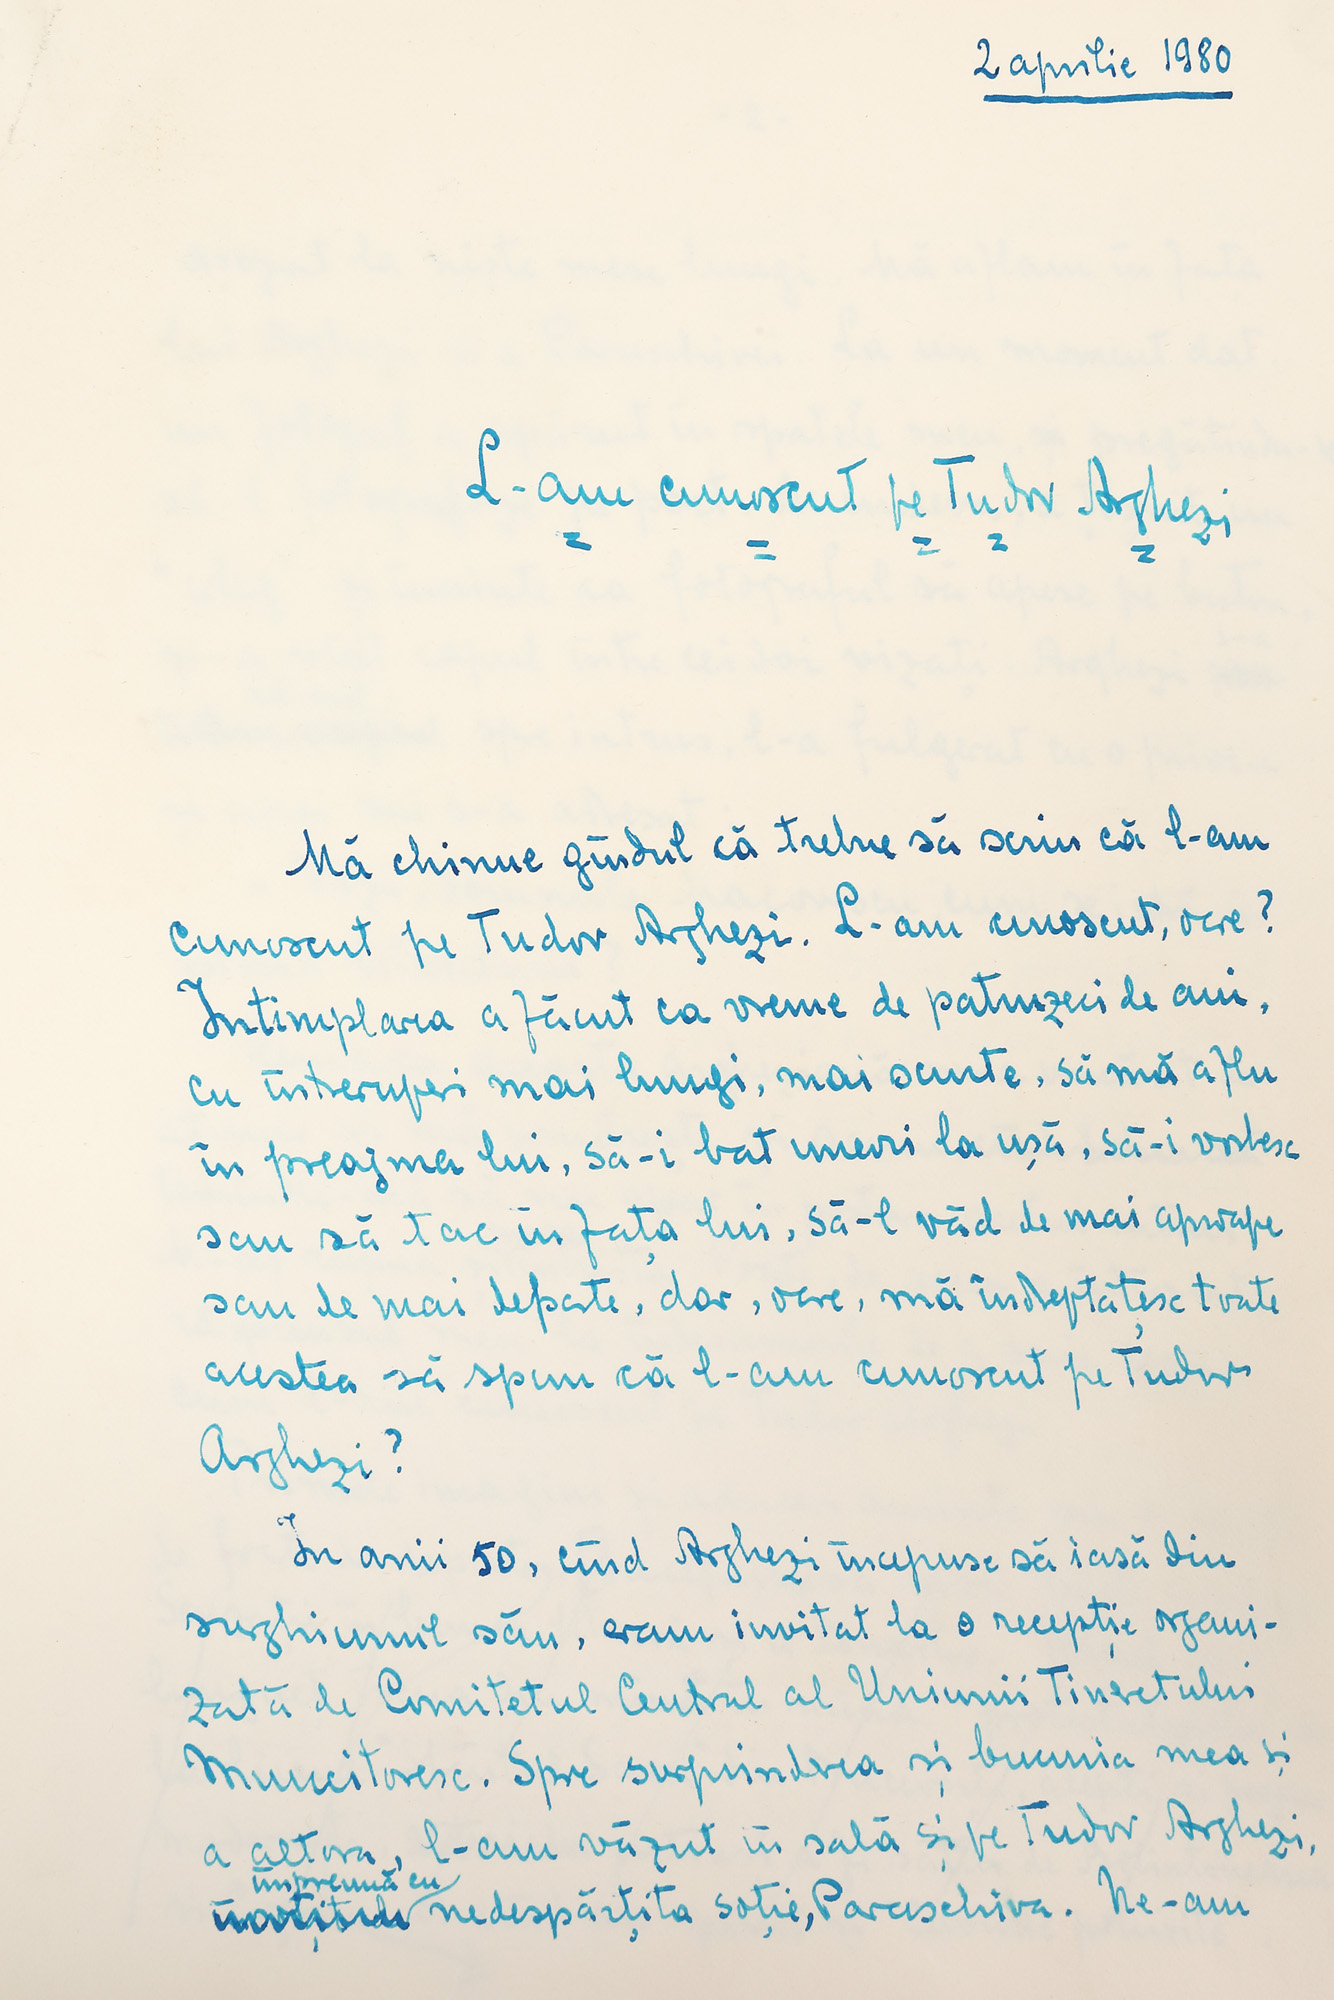 2 aprilie 1980
L-am cunoscut pe Tudor Arghezi
Mă chinue gîndul că trebue să scriu că l-am
cunoscut pe Tudor Arghezi. L-am cunoscut, oare?
Întîmplarea a făcut ca vreme de patruzeci de ani,
cu întreruperi mai lungi, mai scurte, să mă aflu
în preajma lui, să-i bat uneori la ușă, să-i vorbesc
sau să tac în fața lui, să-l văd de mai aproape
sau de mai departe, dar, oare, mă îndreptățesc toate
acestea să spun că l-am cunoscut pe Tudor
Arghezi?
În anii 50, cînd Arghezi începuse să iasă din
surghiunul său, eram invitat la o recepție organi-
zată de Comitetul Central al Uniunii Tineretului
Muncitoresc. Spre surprinderea și bucuria mea și
a altora, l-am văzut în sală și pe Tudor Arghezi,
împreună cu
nedespărțita soție, Paraschiva. Ne-am